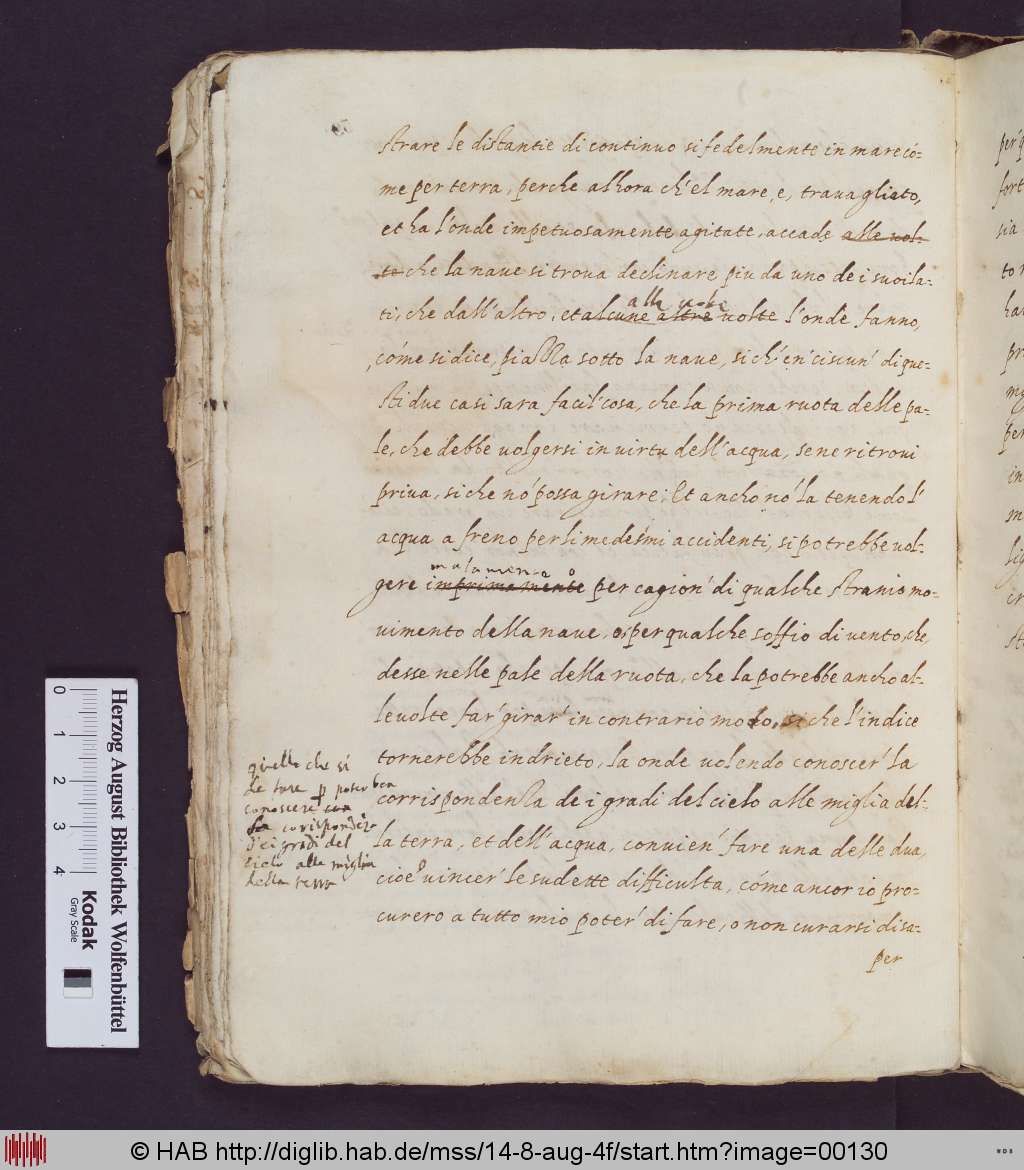 strare le distantie di continuo si fedelmente in mare có-
me per terra, perche alhora ch'el mare, e, trauagliato,
et ha l'onde impetuosamente agitate, accade alle uol-
te che la naue si troua declinare piu da uno de i suoi la-
alle uolte
ti, che dall'altro, et alcune altre uolte l'onde fanno,
cóme si dice, piazza sotto la naue, si ch'en' ciscun' di que-
sti due casi sara facil' cosa, che la prima ruota delle pa-
le, che debbe uolgersi in uirtu dell'acqua, se ne ritroui
priua, si che nó possa girare; Et ancho nó la tenendo l'
acqua a freno per li medesmi accidenti, si potrebbe uol-
malamente
gere imprimamente per cagion' di qualche stranio mo-
uimento della naue, o per qualche soffio di uento, che,
desse nelle pale della ruota, che la potrebbe ancho al-
le uolte far' girar' in contrario modo, si che l'indice
tornerebbe indrieto, la onde uolendo conoscer' la
corrispondenza de i gradi del cielo alle miglia del-
la terra, et dell'acqua, conuien' fare una delle dua,
cioè uincer' le sudette difficulta, cóme ancor io pro-
curero a tutto mio poter' di fare, o non curarsi di sa-
per
quello che si
de fare p poter ben
conoscere
la corispondéza
d'ei gradi del
cielo alle miglia
della terra
0 1 2 3 4
Herzog August Bibliothek Wolfenbüttel
Kodak
Gray Scale
© HAB http://diglib.hab.de/mss/14-8-aug-4f/start.htm?image=00130